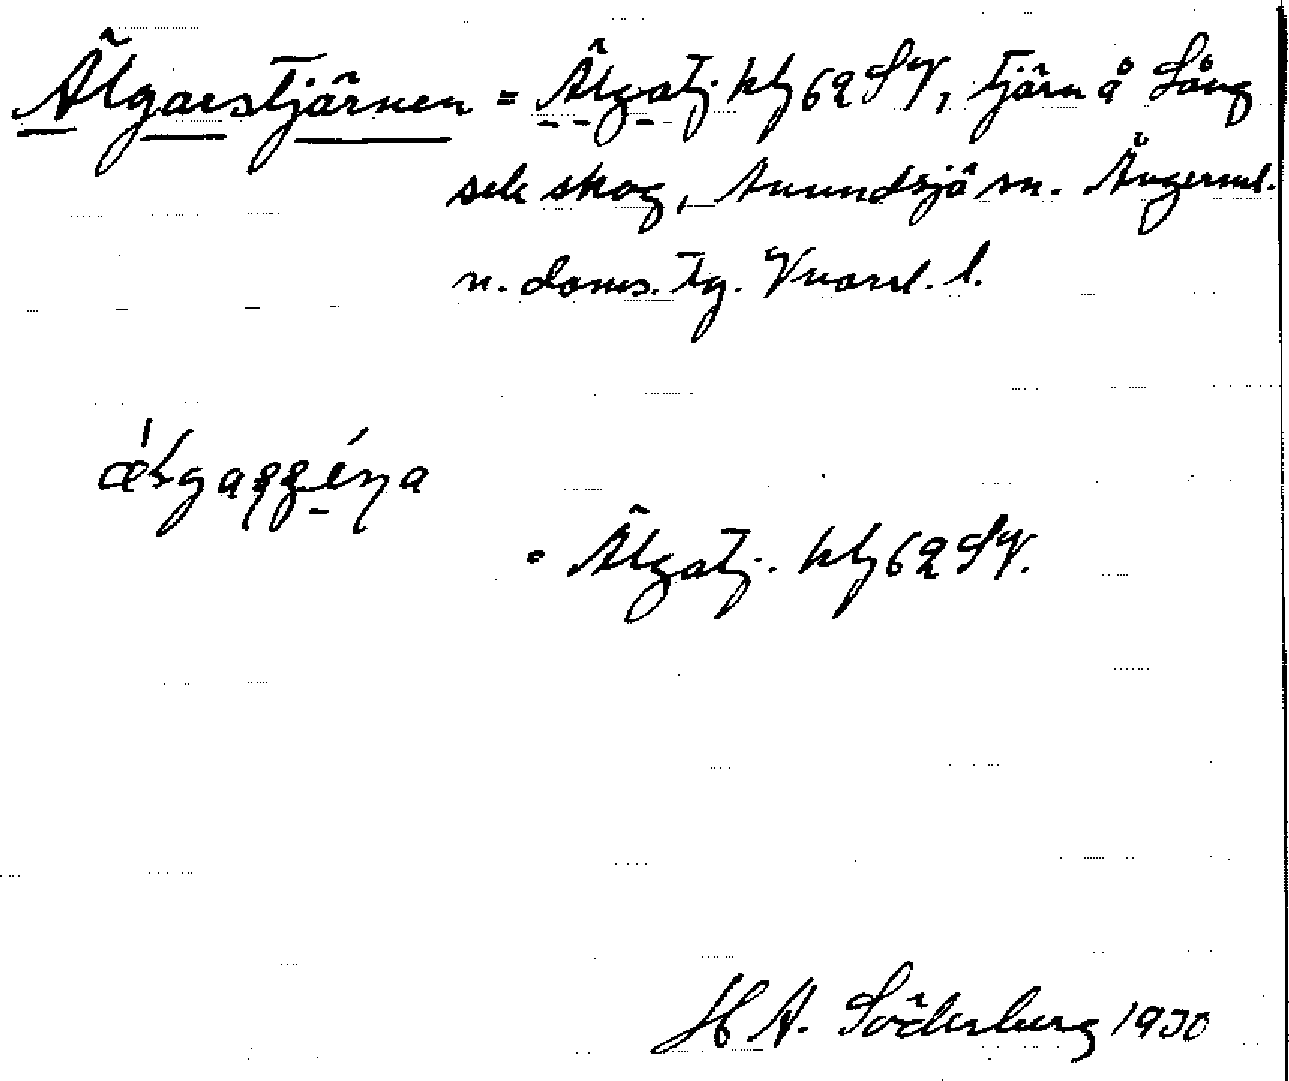 Älgarstjärnen = Älgatj. kbl 62 SV, tjärn å Lång
sele skog, Anundsjö sn. Ångerml.
n. doms. tg. Vnorrl. l.
= Älgatj. kbl 62 SV.
H A. Söderberg 1930